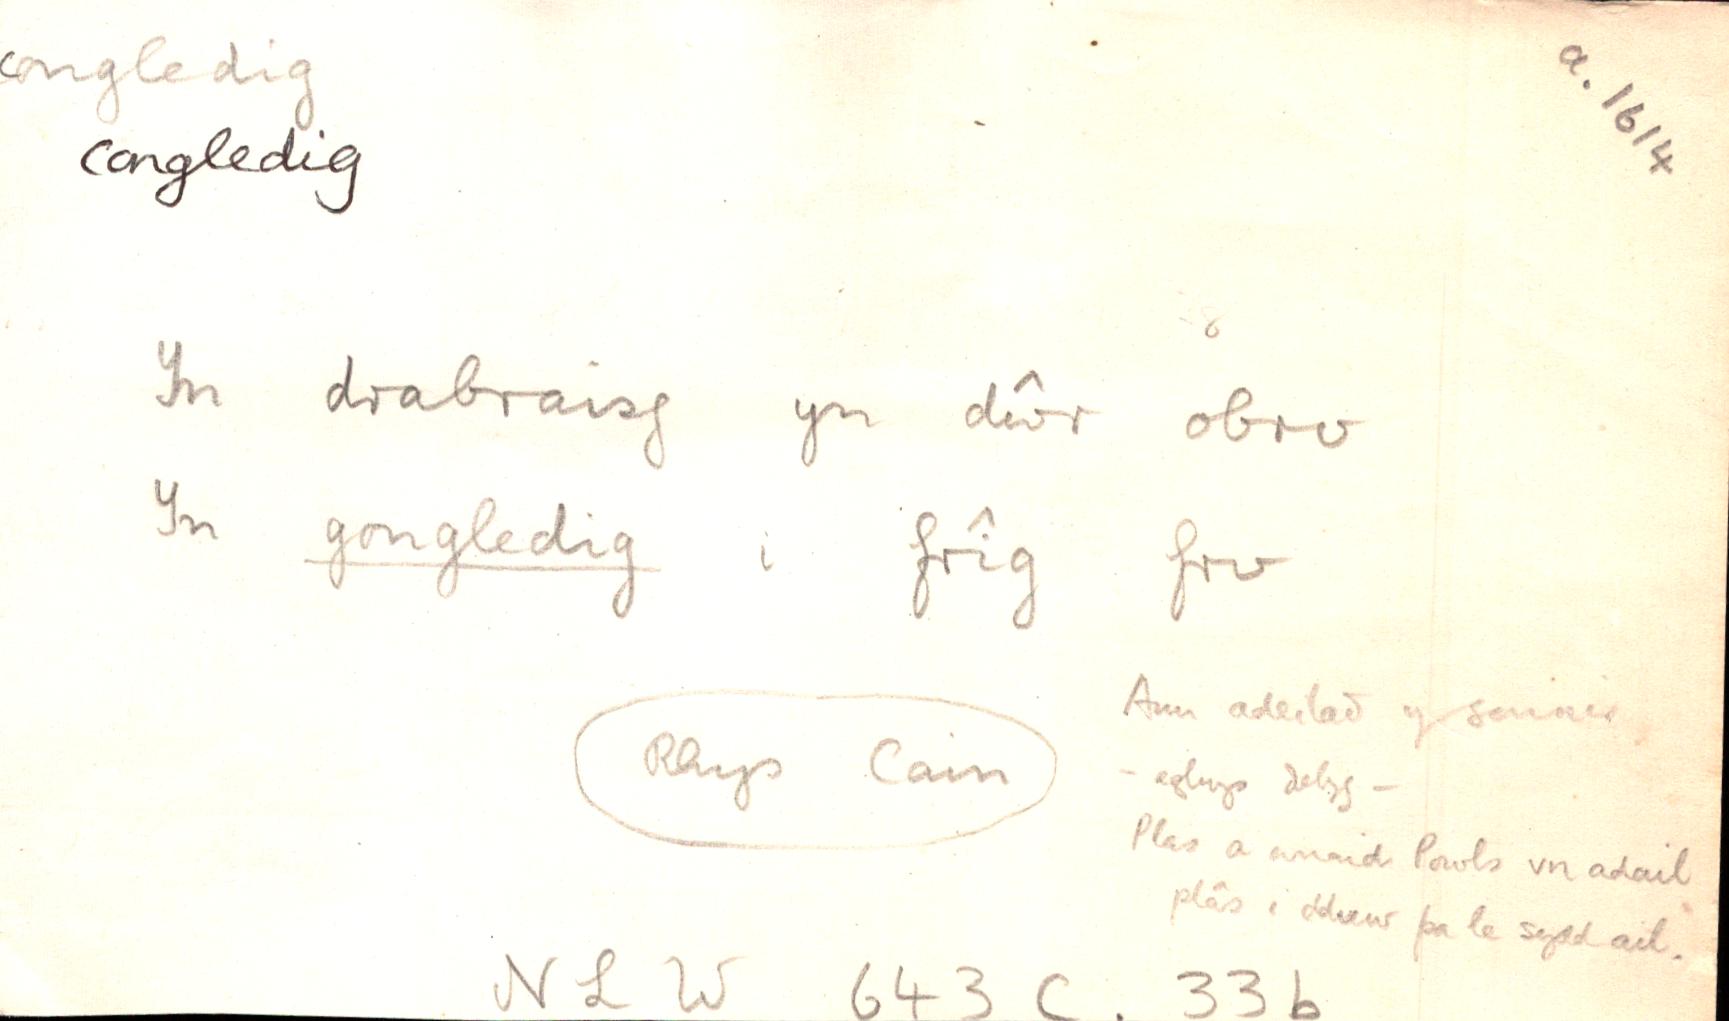 congledig
a. 1614
congledig
Yn drabraisg yn dŵr obrv
Yn gongledig i frîg frv
Rhys Cain
Am adeilað y sonnir
- eglwys ðebyg -
Plas a wnaid Powls vn adail
plâs i ddvw pa le sydd ail.
NLW 643 C. 33b